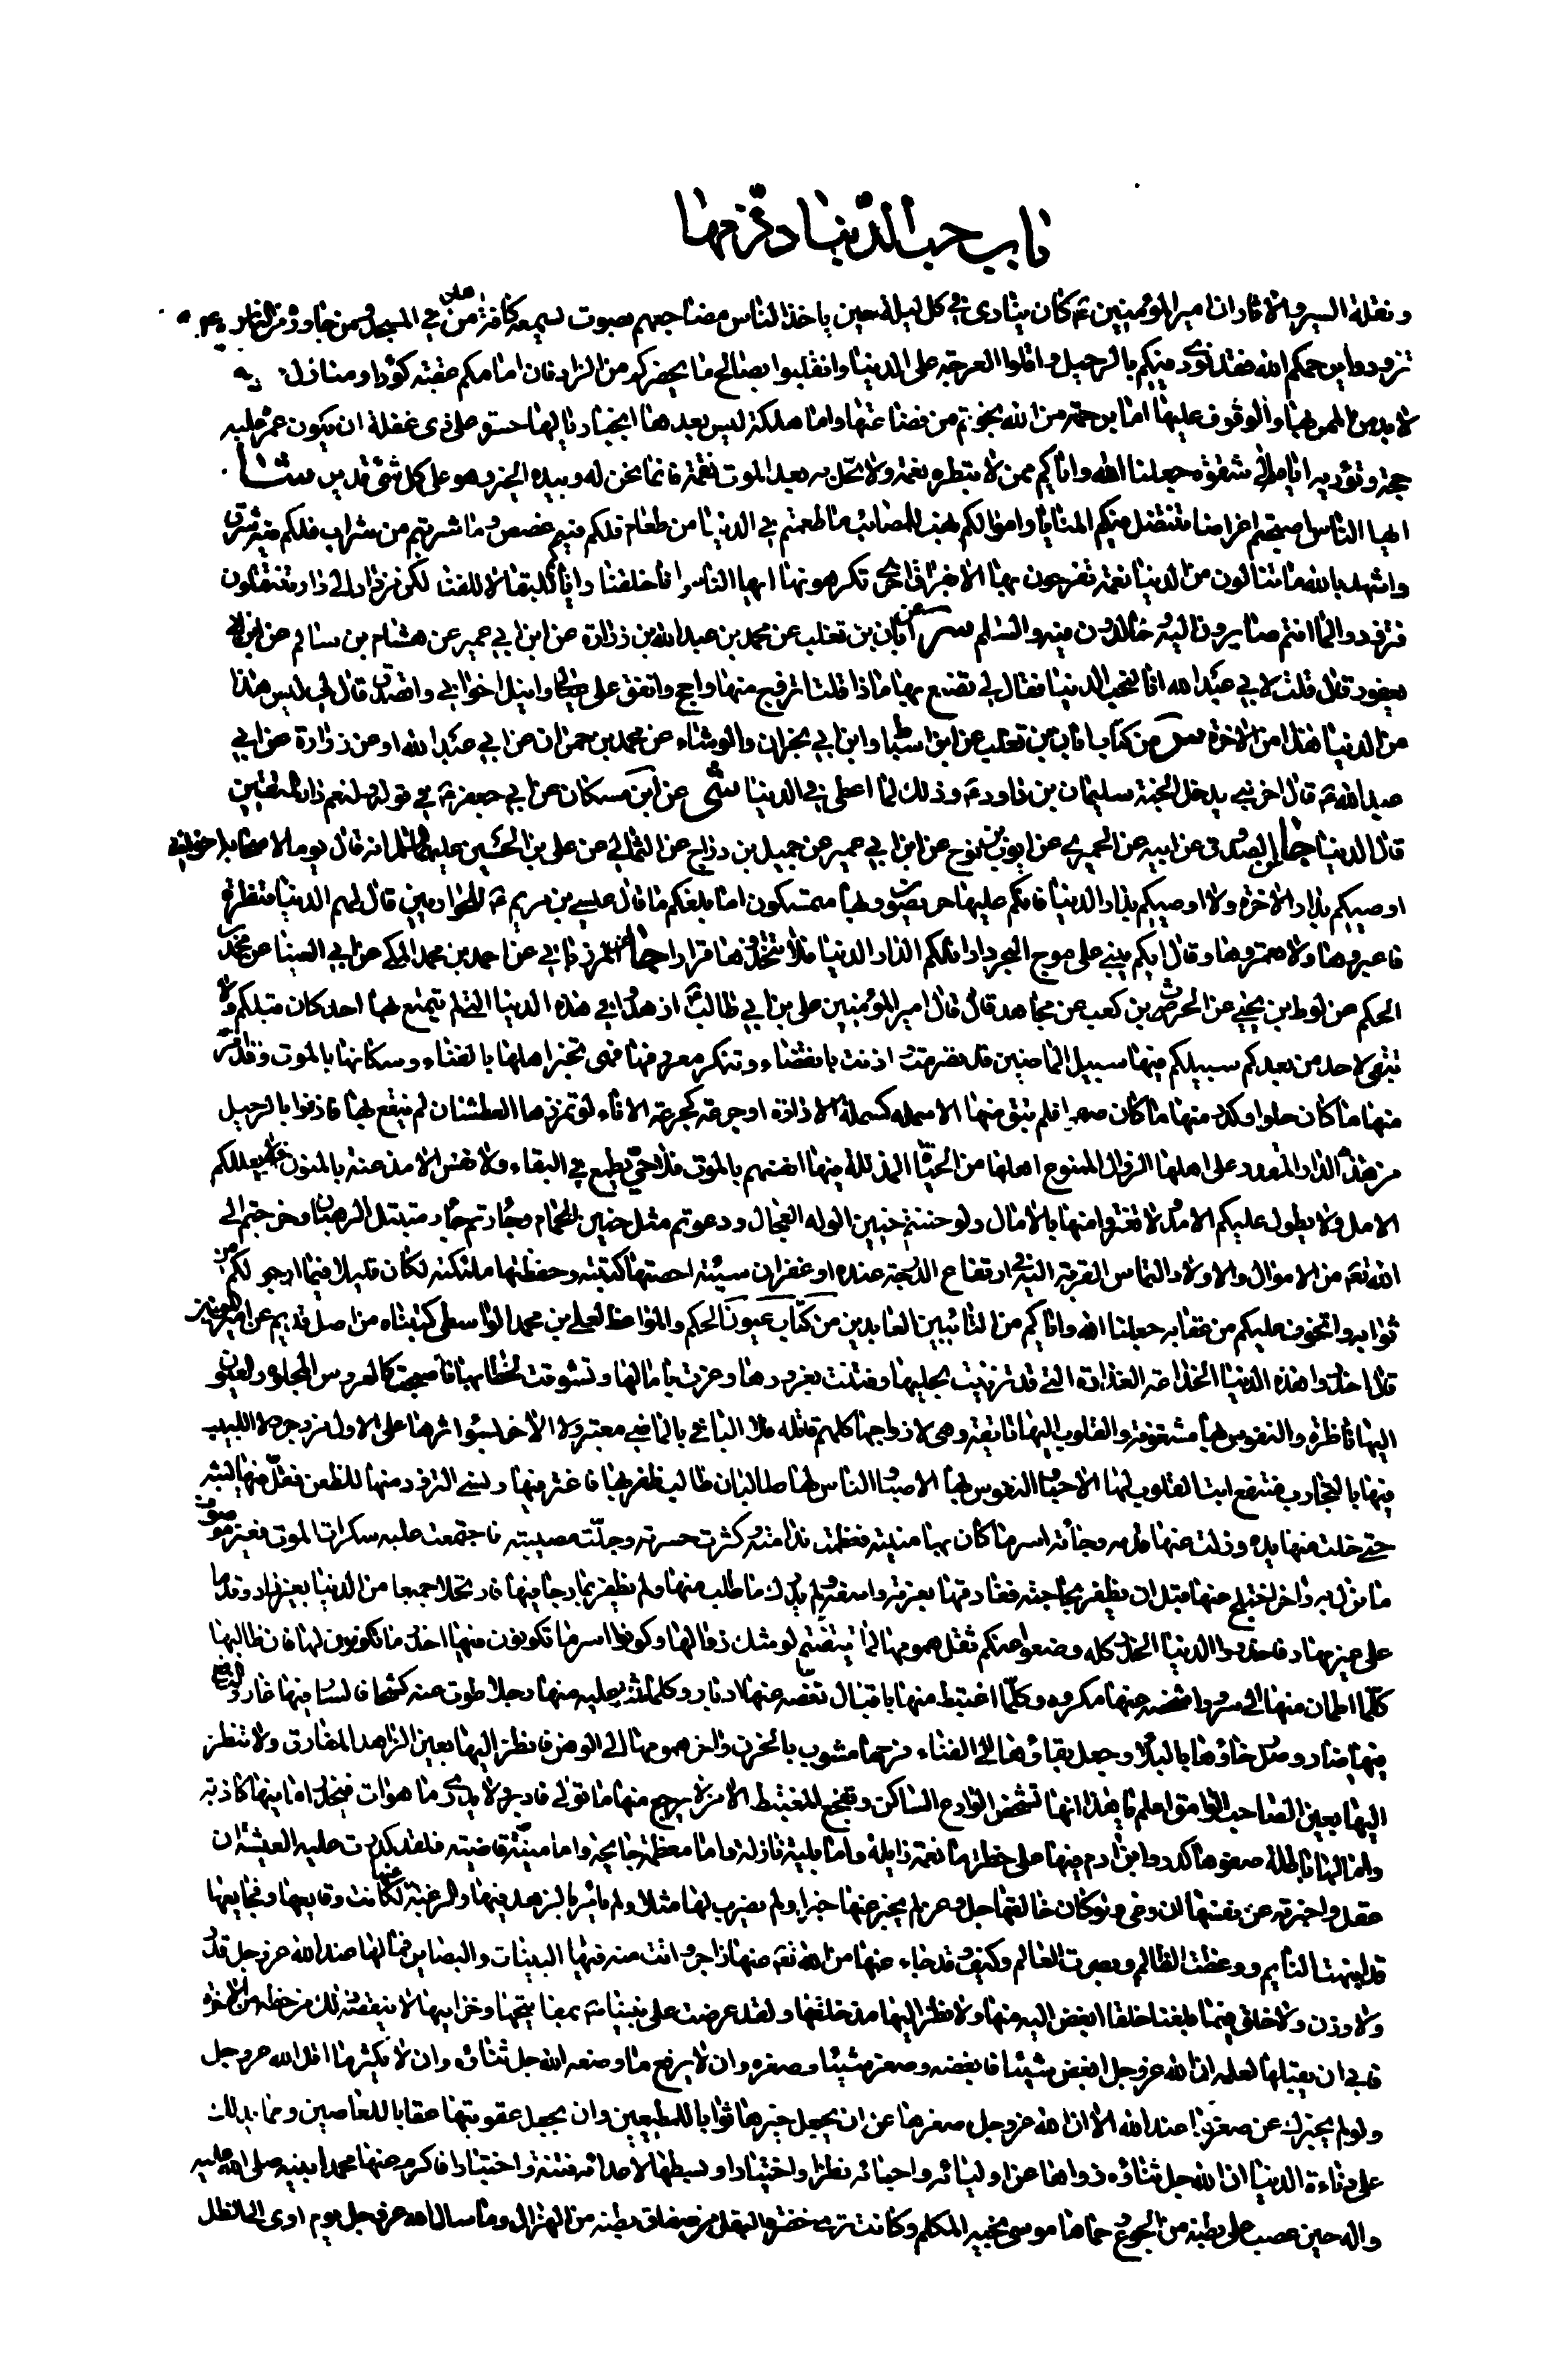 باب حب الدنيا وذمها
ونقلة السير والآثار ان امير المؤمنين ع كان ينادى في كل ليلة حين ياخذ الناس مضاجعهم بصوت يسمعه كافة من في المسجد ومن جاوره من الناس
تزودوا يرحمكم الله فقد نودى فيكم بالرحيل واقلوا العرجة على الدنيا وانقلبوا بصالح ما يحضركم من الزاد فان امامكم عقبة كؤدا ومنازل
لا بد من الممر بها والوقوف عليها اما برحمة من الله نجوتم من فضاعتها واما هلكة ليس بعدها انجبار يا لها حسرة على ذى غفلة ان يكون عمره عليه
حجة وتؤديه ايامه الى شقوة جعلنا الله واياكم ممن لا تبطره نعمة ولا تحل به بعد الموت نقمة فانما نحن له وبيده الخير وهو على كل شئ قدير شا
ايها الناس اصبحتم اغراضا تنتضل فيكم المنايا واموالكم نهب للمصائب ما طعمتم في الدنيا من طعام فلكم فيه غصص وما شربتم من شراب فلكم فيه شرق
واشهد بالله ما تنالون من الدنيا نعمة تفرحون بها الا بفراق اخرى تكرهونها ايها الناس انا خلقنا واياكم للبقاء لا للفناء لكنكم من دار الى دار تنتقلون
فتزودوا لما انتم صايرون اليه وخالدون فيه والسلام سر عن ابان بن تغلب عن محمد بن عبد الله بن زرارة عن ابن ابي عمير عن هشام بن سالم عن ابن ابي
يعفور قال قلت لابي عبد الله انا لنحب الدنيا فقال لي تصنع بها ماذا قلت اتزوج منها واحج وانفق على عيالي وانيل اخواني واتصدق قال لي ليس هذا
من الدنيا هذا من الآخرة سر من كتاب ابان بن تغلب عن ابن اسباط وابن ابي نجران والوشاء عن محمد بن حمران عن ابي عبد الله او عن زرارة عن ابي
عبد الله ع قال آخر نبي يدخل الجنة سليمان بن داود ع وذلك لما اعطى في الدنيا شى عن ابن مسكان عن ابي جعفر ع في قوله ولنعم دار المتقين
قال الدنيا جا الصدوق عن ابيه عن الحميري عن ايوب بن نوح عن ابن ابي عمير عن جميل بن دراج عن الثمالي عن على بن الحسين عليهما السلام انه قال يوما لاصحابه اخواني
اوصيكم بدار الآخرة ولا اوصيكم بدار الدنيا فانكم عليها حريصون وبها متمسكون اما بلغكم ما قال عيسى بن مريم ع للحواريين قال لهم الدنيا قنطرة
فاعبروها ولا تعمروها وقال ايكم يبني على موج البحر دارا تلكم الدار الدنيا فلا تتخذوها قرارا جا عن المرزباني عن احمد بن محمد المكي عن ابي العينا عن محمد بن
الحكم عن لوط بن يحيى عن الحرث بن كعب عن مجاهد قال قال امير المؤمنين على بن ابي طالب ازهدوا في هذه الدنيا التي لم يتمتع بها احد كان قبلكم ولا
تبقى لاحد من بعدكم سبيلكم فيها سبيل الماضين قد تصرمت اذنت بانقضاء وتنكر معروفها فهى تخبر اهلها بالفناء وسكانها بالموت وقد امر
منها ما كان حلوا وكدر منها ما كان صفوا فلم تبق منها الا سملة كسملة الاداوة او جرعة كجرعة الاناء لو تمززها العطشان لم ينقع بها فاذنوا بالرحيل
من هذه الدار المقدور على اهلها الزوال الممنوع اهلها من الحياة المذللة فيها انفسهم بالموت فلا حي يطمع في البقاء ولا نفس الا مذعنة بالمنون فلا يعللكم
الامل ولا يطول عليكم الامد ولا تغتروا منها بالآمال ولو حننتم حنين الوله العجال ودعوتم مثل حنين الحمام وجأرتم جأر متبتلي الرهبان وخرجتم الى
الله تعه من الاموال والاولاد التماس القربة اليه في ارتفاع الدرجة عنده او غفران سيئة احصتها كتبته وحفظتها ملئكته لكان قليلا فيما ارجو لكم من
ثوابه واتخوف عليكم من عقابه جعلنا الله واياكم من التائبين العابدين من كتاب عيون الحكم والمواعظ لعلي بن محمد الواسطى كتبناه من اصل قديم عن امير المؤمنين
قال احذروا هذه الدنيا الخداعة الغدارة التي قد تزينت بحليها وفتنت بغرورها وغرت بآمالها وتشوقت لخطابها فاصبحت كالعروس المجلوة والعيون
اليها ناظرة والنفوس بها مشغوفة والقلوب اليها تائقة وهى لازواجها كلهم قاتله فلا الباقي بالماضي معتبر ولا الآخر بسوء اثرها على الاول مزدجر ولا اللبيب
فيها بالتجارب منتفع ابت القلوب لها الا حبا والنفوس بها الا صبا والناس لها طالبان طالب ظفر بها فاغتر فيها ونسى التزود منها للظعن فقل فيها لبثه
حتى خلت منها يده وزلت عنها قدمه وجائته اسر ما كان بها منيته فعظمت ندامته وكثرت حسرته وجلت مصيبته فاجتمعت عليه سكرات الموت فغير موصوف
ما نزل به وآخر اختلج عنها قبل ان يظفر بحاجته ففارقها بغرته واسفه ولم يدرك ما طلب منها ولم يظفر بما رجا فيها فارتحلا جميعا من الدنيا بغير زاد وقدما
على غير مهاد فاحذروا الدنيا الحذر كله وضعوا عنكم ثقل همومها لما تيقنتم لوشك زوالها وكونوا اسر ما تكونون فيها احذر ما تكونون لها فان طالبها
كلما اطمان منها الى سرور اشخصه عنها مكروه وكلما اغتبط منها باقبال نغصه عنها ادبار وكلما ثبتت عليه منها رجلا طوت عنه كشحا فالسار فيها غار والنافع
فيها ضار وصل رخاؤها بالبلاء وجعل بقاؤها الى الفناء فرحها مشوب بالحزن وآخر همومها الى الوهن فانظر اليها بعين الزاهد المفارق ولا تنظر
اليها بعين الصاحب الوامق اعلم يا هذا انها تشخص الوادع الساكن وتفجع المغتبط الآمن لا يرجع منها ما تولى فادبر ولا يدرى ما هو آت فيحذر امانيها كاذبة
وآمالها باطلة صفوها كدر وابن آدم فيها على خطر اما نعمة زايلة واما بلية نازلة واما معظمة جايحة واما منية قاضية فلقد كدرت عليه العيشة ان
عقل واخبرته عن نفسها ان وعى ولو كان خالقها جل وعز لم يخبر عنها خبرا ولم يضرب لها مثلا ولم يأمر بالزهد فيها والرغبة عنها لكانت وقايعها وفجايعها
قد انبهت النايم ووعظت الظالم وبصرت العالم وكيف وقد جاء عنها من الله تعه عنها زاجر واتت منه فيها البينات والبصاير فما لها عند الله عز وجل قدر
ولا وزن ولا خلق فيما بلغنا خلقا ابغض اليه منها ولا نظر اليها مذ خلقها ولقد عرضت على نبينا ص بمفاتيحها وخزاينها لا ينقصه ذلك من حظه من الآخرة
فابى ان يقبلها لعلمه ان الله عز وجل ابغض شيئا فابغضه وصغر شيئا وصغره وان لا يرفع ما وضعه الله جل ثناؤه وان لا يكثر ما اقل الله عز وجل
ولو لم يخبرك عن صغرها عند الله الا ان الله عز وجل صغرها عن ان يجعل خيرها ثوابا للمطيعين وان يجعل عقوبتها عقابا للعاصين ومما يدلك
على دناءة الدنيا ان الله جل ثناؤه زواها عن اوليائه واحبائه نظرا واختيارا وبسطها لاعدائه فتنة واختبارا فاكرم عنها محمدا نبيه صلى الله عليه
وآله حين عصب على بطنه من الجوع وحماها موسى نجيه المكلم وكانت ترى خضرة البقل من صفاق بطنه من الهزال وما سال الله عز وجل يوم اوى الى الظل